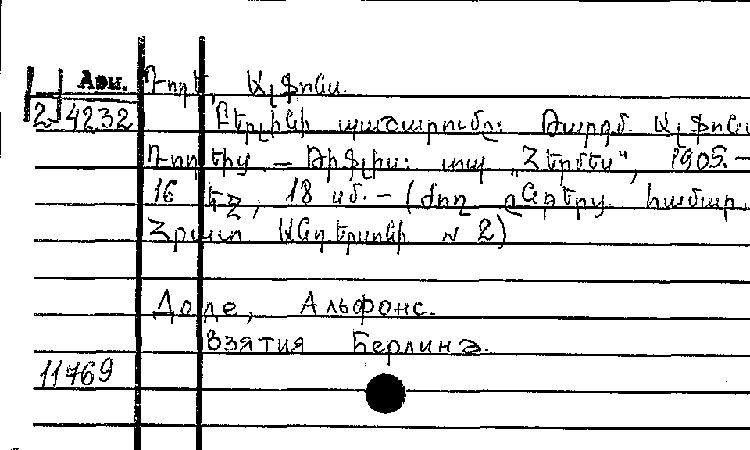 Արմ. Դոդե, Ալֆոնս.
2-4232 Բեռլինի պաշարումը: Թարգմ. Ալֆոնս
Դոդեից — Թիֆլիս: տպ „Հերմես“, 1905.—
16 եջ, 18 սմ. — (ժող ընթերց. համար.
Հրատ Անդերսոնի № 2)
Доде, Альфонс.
Взятия Берлина.
11769